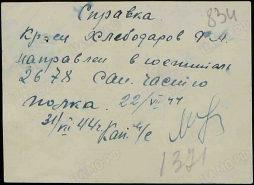 Справка
834
Кр-ец Хлебодаров Ф.М.
направлен в госпиталь
2678 сан. частью
полка. 22/VII 44
31/VII 44 г. Кап. м/с
1371